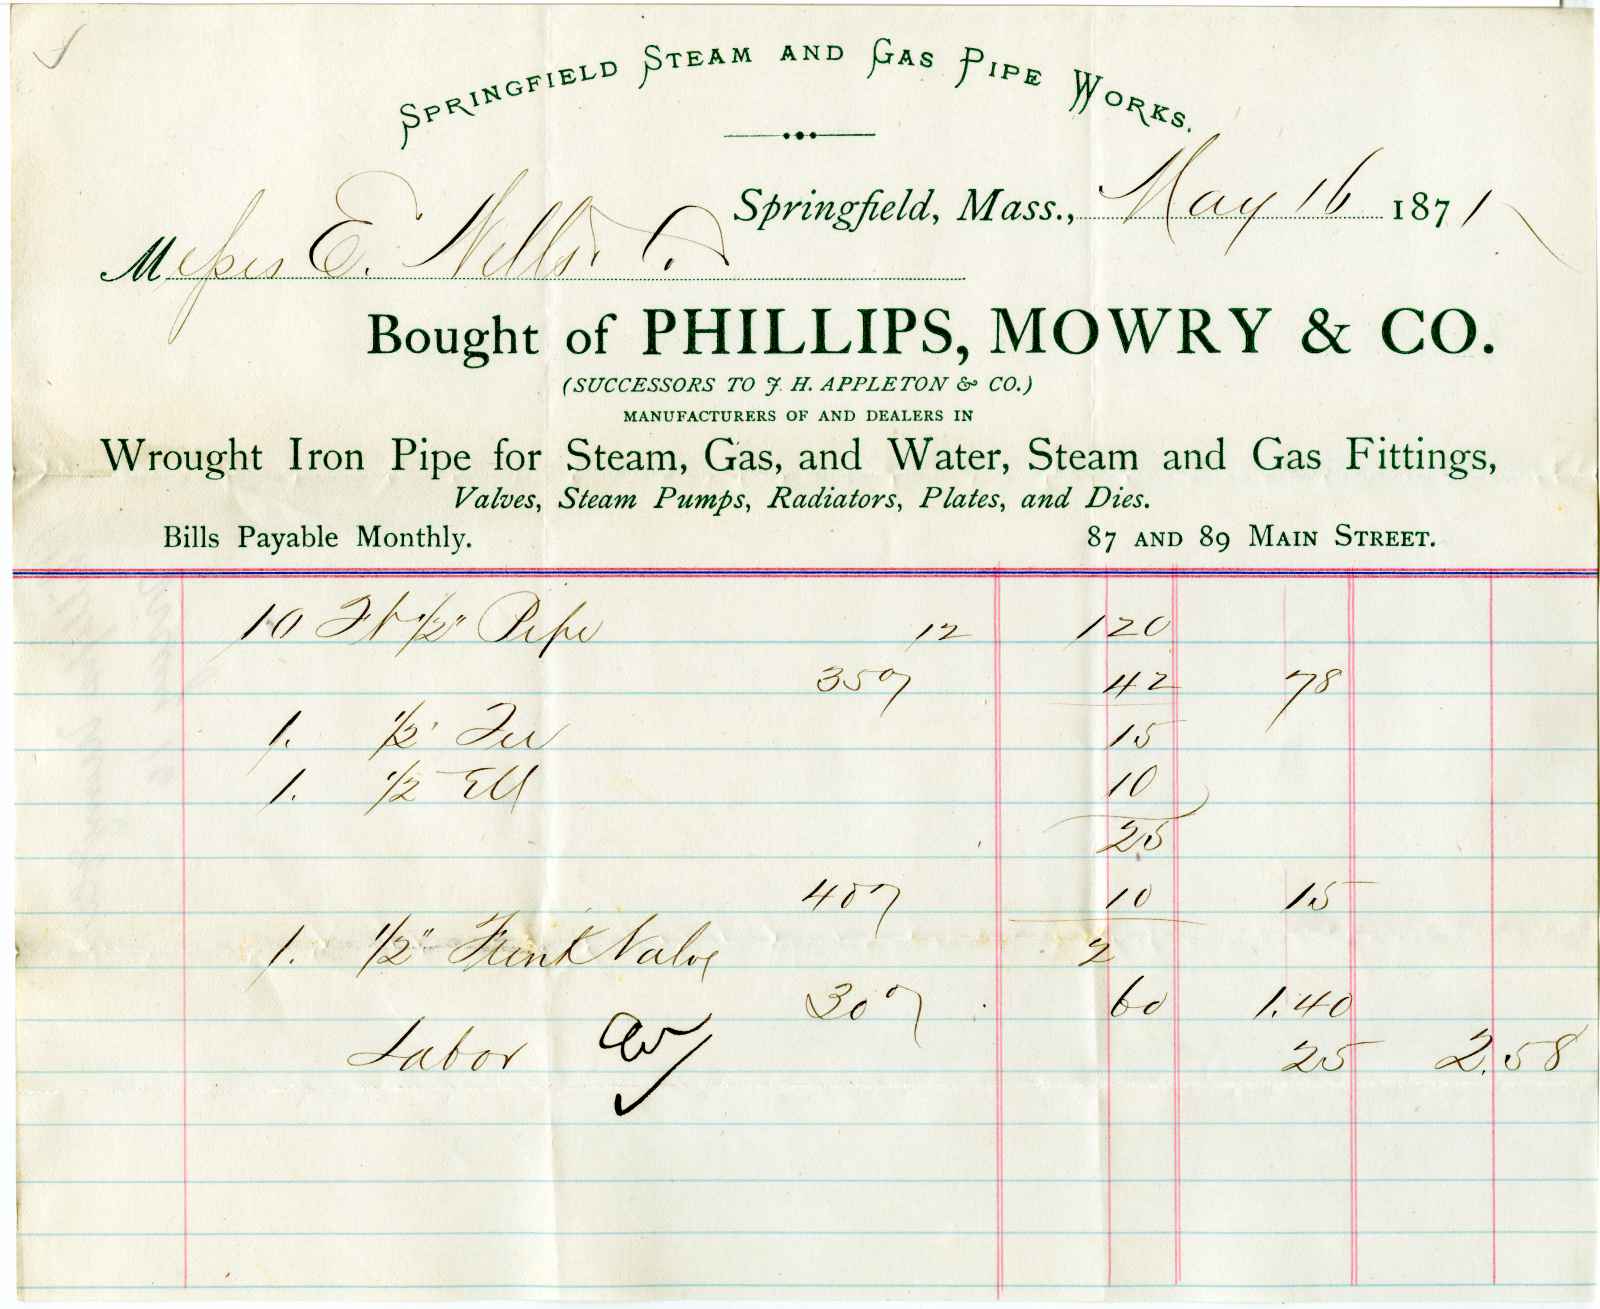 SPRINGFIELD STEAM AND GAS PIPE WORKS.
Springfield, Mass., May 16 1871
Messrs E. Wells.
Bought of PHILLIPS, MOWRY & CO.
(SUCCESSORS TO J. H. APPLETON & CO.)
MANUFACTURERS OF AND DEALERS IN
Wrought Iron Pipe for Steam, Gas, and Water, Steam and Gas Fittings,
Valves, Steam Pumps, Radiators, Plates, and Dies.
Bills Payable Monthly. 87 AND 89 MAIN STREET.
10 Ft 1/2" Pipe 12 120
35% 42 78
1. 1/2" Tee 15
1. 1/2 Ell 10
25
40% 10 15
1. 1/2" Valve 2
30% 60 1.40
Labor 25 2.58